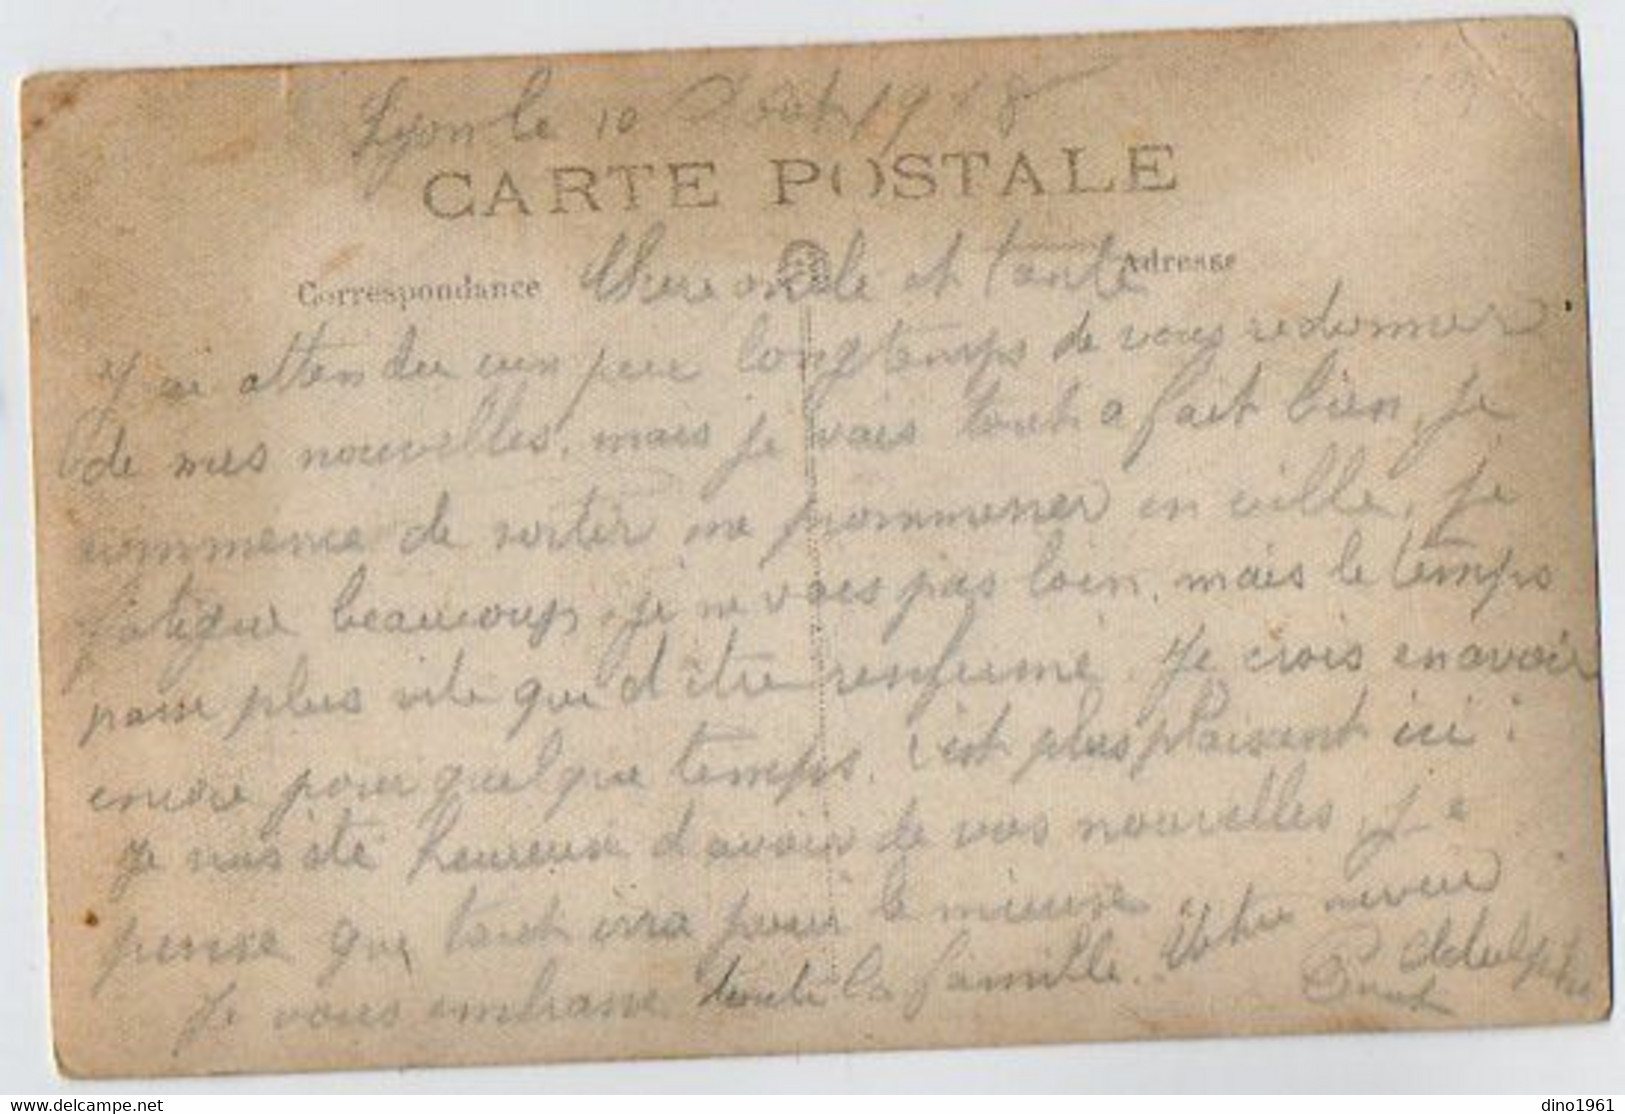 Lyon le 10 Août 1918
CARTE POSTALE
Correspondance
Adresse
Chere oncle et tante
J'ai attendu un peu longtemps de vous redonner
de mes nouvelles, mais je vais tout a fait bien, je
commence de sortir me prommener en ville, je
fatigue beaucoup, je ne vais pas loin, mais le temps
passe plus vite que d'être renfermé. Je crois en avoir
encore pour quelque temps. C'est plus plaisant ici :
Je suis été heureuse d'avoir de vos nouvelles, je
pense que tout irra pour le mieux.
Je vous embrasse toute la famille. Votre neveu
Adolphe
dino1961